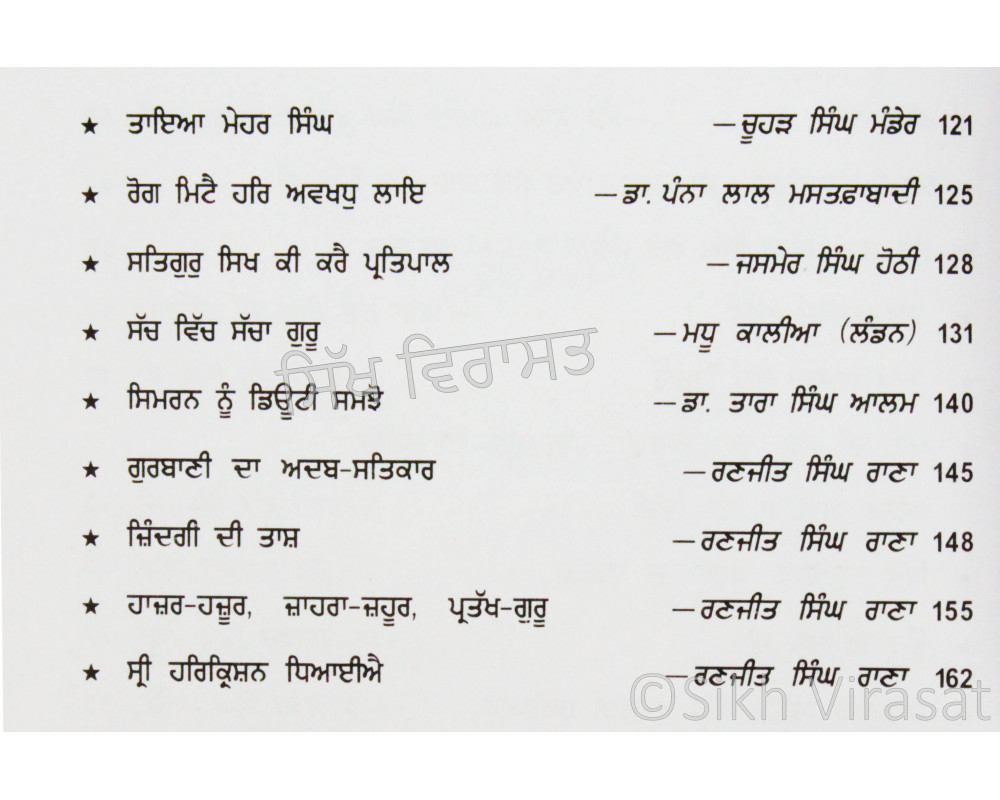 ★ ਤਾਇਆ ਮੇਹਰ ਸਿੰਘ —ਚੂਹੜ ਸਿੰਘ ਮੰਡੇਰ 121
★ ਰੋਗ ਮਿਟੈ ਹਰਿ ਅਵਖਧੁ ਲਾਇ —ਡਾ. ਪੰਨਾ ਲਾਲ ਮਸਤਫ਼ਾਬਾਦੀ 125
★ ਸਤਿਗੁਰੁ ਸਿਖ ਕੀ ਕਰੈ ਪ੍ਰਤਿਪਾਲ —ਜਸਮੇਰ ਸਿੰਘ ਹੋਠੀ 128
★ ਸੱਚ ਵਿੱਚ ਸੱਚਾ ਗੁਰੂ —ਮਧੂ ਕਾਲੀਆ (ਲੰਡਨ) 131
ਸਿੱਖ ਵਿਰਾਸਤ
★ ਸਿਮਰਨ ਨੂੰ ਡਿਊਟੀ ਸਮਝੋ —ਡਾ. ਤਾਰਾ ਸਿੰਘ ਆਲਮ 140
★ ਗੁਰਬਾਣੀ ਦਾ ਅਦਬ-ਸਤਿਕਾਰ —ਰਣਜੀਤ ਸਿੰਘ ਰਾਣਾ 145
★ ਜ਼ਿੰਦਗੀ ਦੀ ਤਾਸ਼ —ਰਣਜੀਤ ਸਿੰਘ ਰਾਣਾ 148
★ ਹਾਜ਼ਰ-ਹਜ਼ੂਰ, ਜ਼ਾਹਰਾ-ਜ਼ਹੂਰ, ਪ੍ਰਤੱਖ-ਗੁਰੂ —ਰਣਜੀਤ ਸਿੰਘ ਰਾਣਾ 155
★ ਸ੍ਰੀ ਹਰਿਕ੍ਰਿਸ਼ਨ ਧਿਆਈਐ —ਰਣਜੀਤ ਸਿੰਘ ਰਾਣਾ 162
©Sikh Virasat